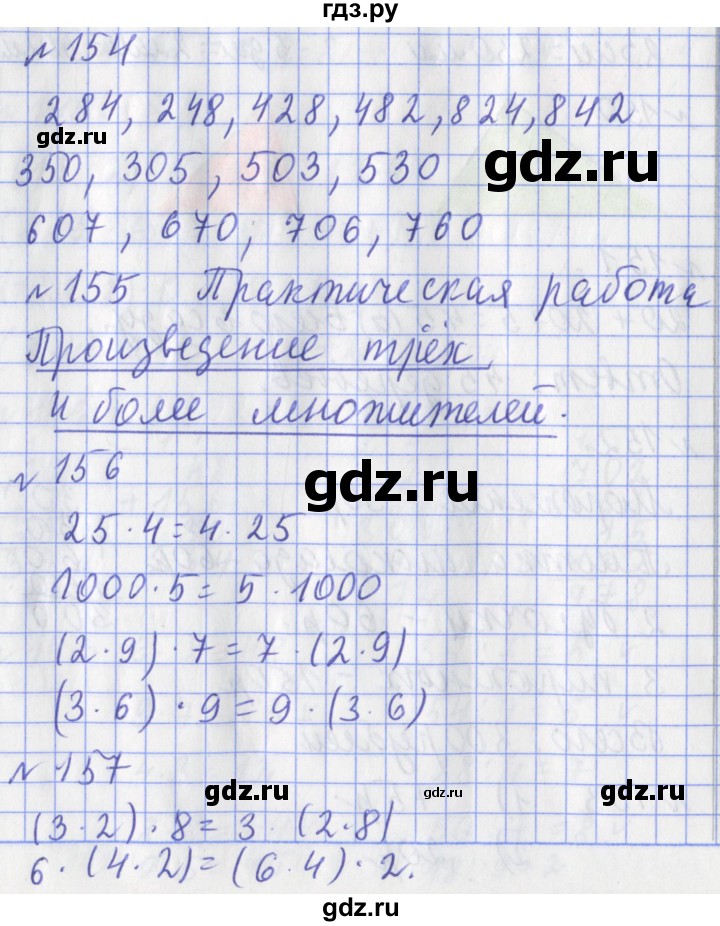 гдз.ру
№ 154
284, 248, 428, 482, 824, 842
gdz.ru
gdz.ru
350, 305, 503, 530
607, 670, 706, 760
№ 155 Практическая работа
Произведение трёх
и более множителей.
№ 156
gdz.ru
25 · 4 = 4 · 25
1000 · 5 = 5 · 1000
(2 · 9) · 7 = 7 · (2 · 9)
(3 · 6) · 9 = 9 · (3 · 6)
№ 157
gdz.ru gdz.ru gdz.ru
(3 · 2) · 8 = 3 · (2 · 8)
6 · (4 · 2) = (6 · 4) · 2.
gdz.ru